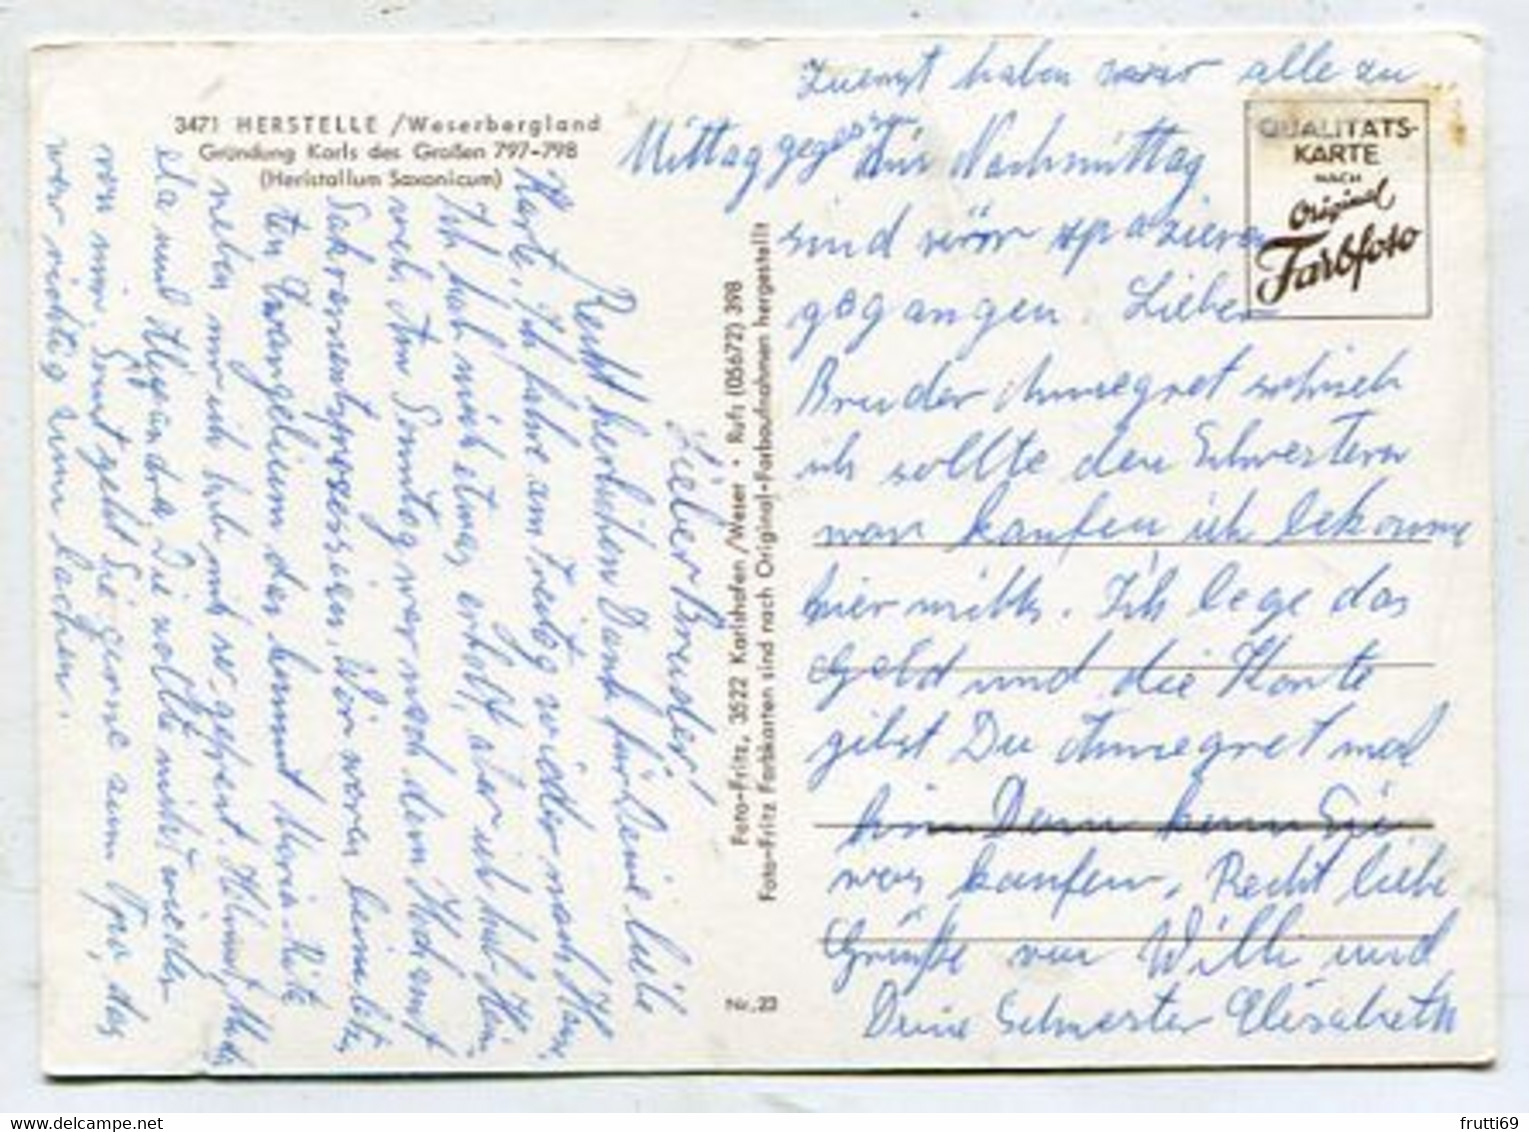 3471 HERSTELLE / Weserbergland
Gründung Karls des Großen 797-798
(Heristallum Saxonicum)
Lieber Bruder!
Recht herzlichen Dank für Deine liebe
Karte, Ich fahre am Freitag wieder nach Haus,
Ich hab mich etwas erholt, aber ich hab
weh. Am Sonntag war nach dem Hochamt
Sakramentsprozession, Wir waren beim letz-
ten Evangelium da
neben mir ich hab mit
Die wollte nicht wieder
von mir. Sonst geht Sie gerne zum das
war richtig zum lachen.
Zuerst haben wir alle zu
Mittag gegessen Nachmittag
sind wir spazieren
gegangen. Lieber
Bruder Annegret
ich sollte den Schwestern
was kaufen ich bekomme
hier nichts. Ich lege das
Geld und die Karte
gibst Du Annegret mal
hin Dann kann Sie
was kaufen. Recht liebe
Grüße von Willi und
Deine Schwester Elisabeth
QUALITÄTS-
KARTE
NACH
Original
Farbfoto
Foto-Fritz, 3522 Karlshafen/Weser · Ruf: (05672) 398
Foto-Fritz Farbkarten sind nach Original-Farbaufnahmen hergestellt
Nr. 23
frutti69